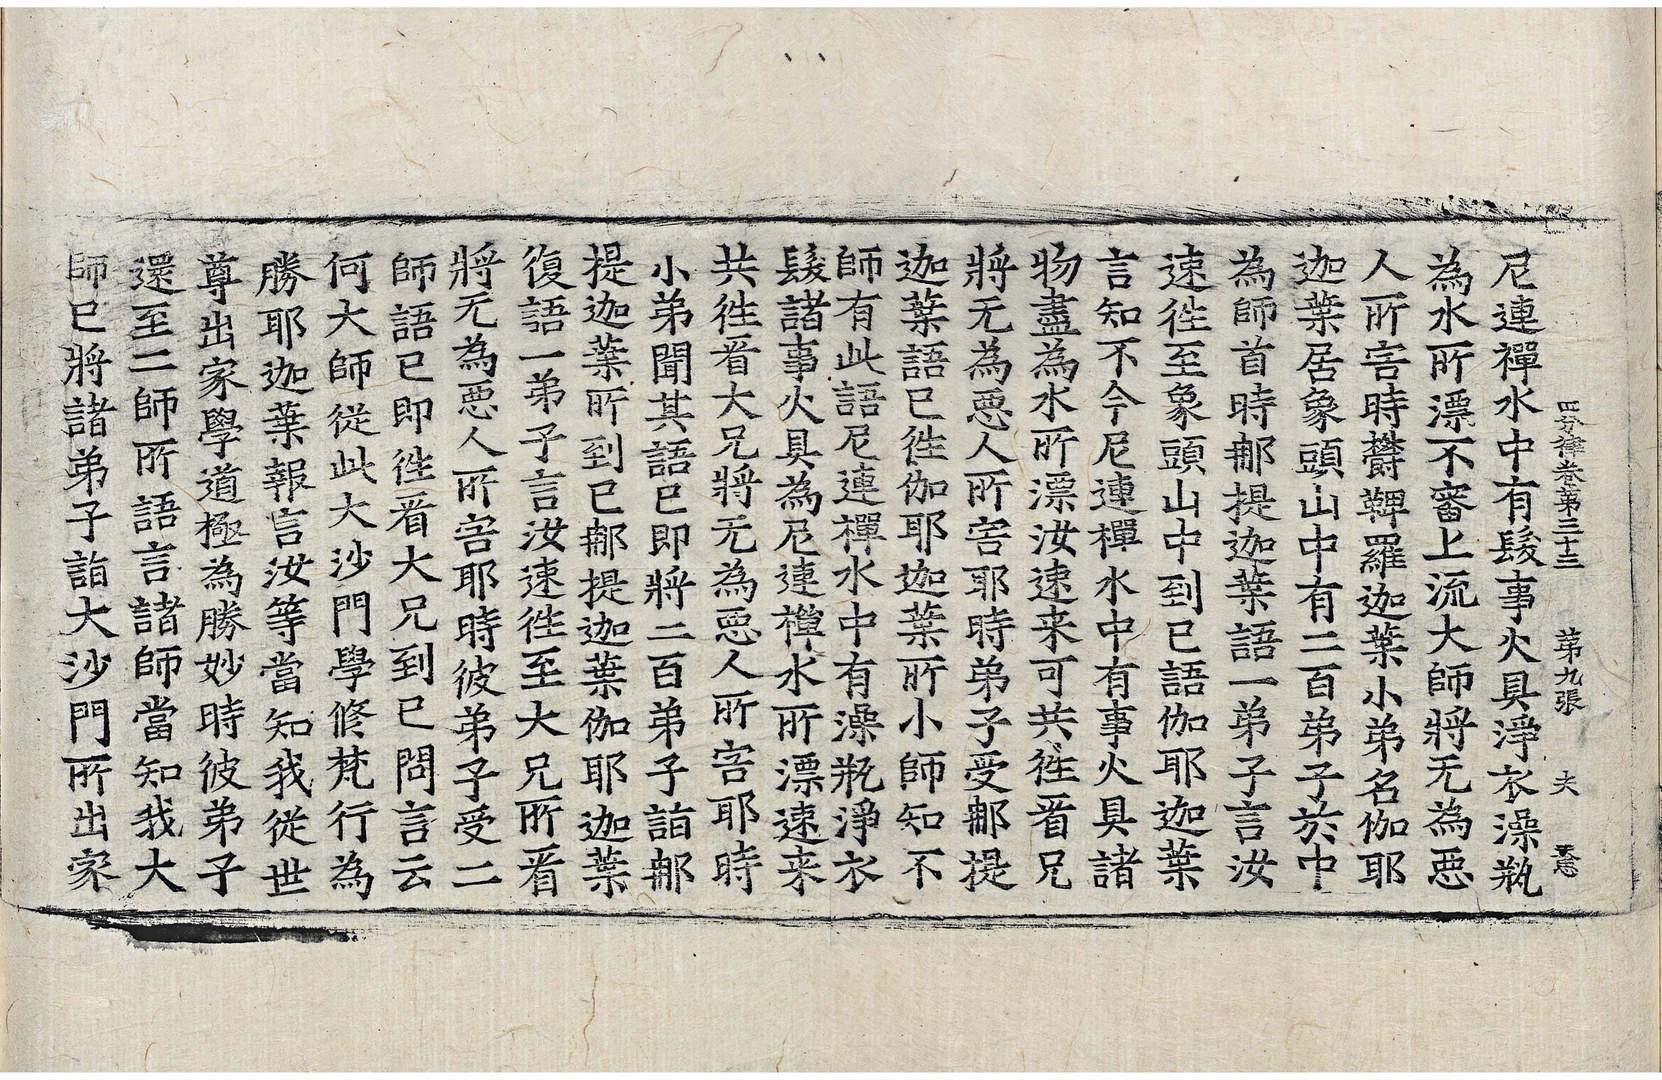 四分律卷第三十三 第九張 夫
尼連禪水中有髮事火具淨衣澡瓶
為水所漂不審上流大師將无為惡
人所害時欝鞞羅迦葉小弟名伽耶
迦葉居象頭山中有二百弟子於中
為師首時那提迦葉語一弟子言汝
速往至象頭山中到已語伽耶迦葉
言知不今尼連禪水中有事火具諸
物盡為水所漂汝速来可共往看兄
將无為惡人所害耶時弟子受那提
迦葉語已往伽耶迦葉所小師知不
師有此語尼連禪水中有澡瓶淨衣
髮諸事火具為尼連禪水所漂速来
共往看大兄將无為惡人所害耶時
小弟聞其語已即將二百弟子詣那
提迦葉所到已那提迦葉伽耶迦葉
復語一弟子言汝速往至大兄所看
將无為惡人所害耶時彼弟子受二
師語已即往看大兄到已問言云
何大師從此大沙門學修梵行為
勝耶迦葉報言汝等當知我從世
尊出家學道極為勝妙時彼弟子
還至二師所語言諸師當知我大
師已將諸弟子詣大沙門所出家